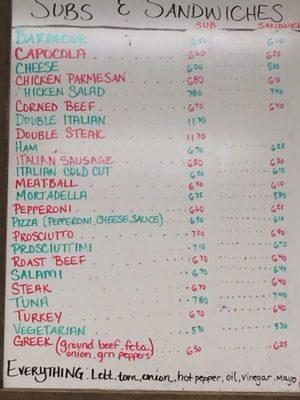 SUBS & SANDWICHES
SUB SANDWICH
BARBECUE 650 610
CAPOCOLA 660 625
CHEESE 600 580
CHICKEN PARMESAN 680 610
CHICKEN SALAD 780 740
CORNED BEEF 670 640
DOUBLE ITALIAN 1170
DOUBLE STEAK 1170
HAM 670
ITALIAN SAUSAGE 680 630
ITALIAN COLD CUT 610
MEATBALL 650 610
MORTADELLA 530
PEPPERONI 660 625
PIZZA (PEPPERONI, CHEESE, SAUCE) 650 610
PROSCIUTTO 720 690
PROSCIUTTINI 710 670
ROAST BEEF 670 640
SALAMI 670 640
STEAK 670 640
TUNA 780 740
TURKEY 670 640
VEGETARIAN 570 530
GREEK (ground beef, feta, 650 625
onion, grn peppers)
EVERYTHING: Lett, tom, onion, hot pepper, oil, vinegar, Mayo